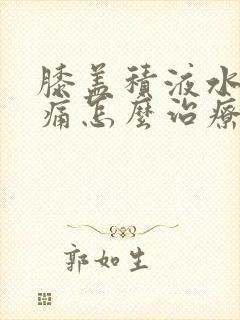 膝盖積液水
痛怎麼治療
郭如生